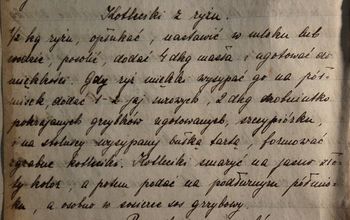 Kotleciki z ryżu.
1/2 kg ryżu, opłukać, nastawić w mleku lub
wodzie, posolić, dodać 4 dkg masła i ugotować do
miękkości. Gdy ryż miękki wysypać go na pół-
misek dodać 1-2 jaj surowych, 2 dkg drobniutko
pokrajanych grzybków ugotowanych, szczypiórku,
i na stolnicy wysypanej bułką tartą, formować
zgrabne kotleciki. Kotleciki smażyć na jasno zło-
ty kolor, a potem podać na podłużnym półmis-
ku, a osobno w sosierce sos grzybowy.